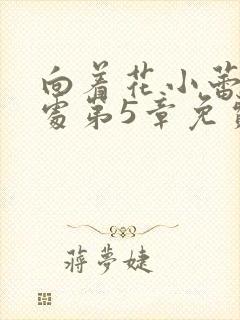 向着花小蕾
处第5章免
蒋梦婕